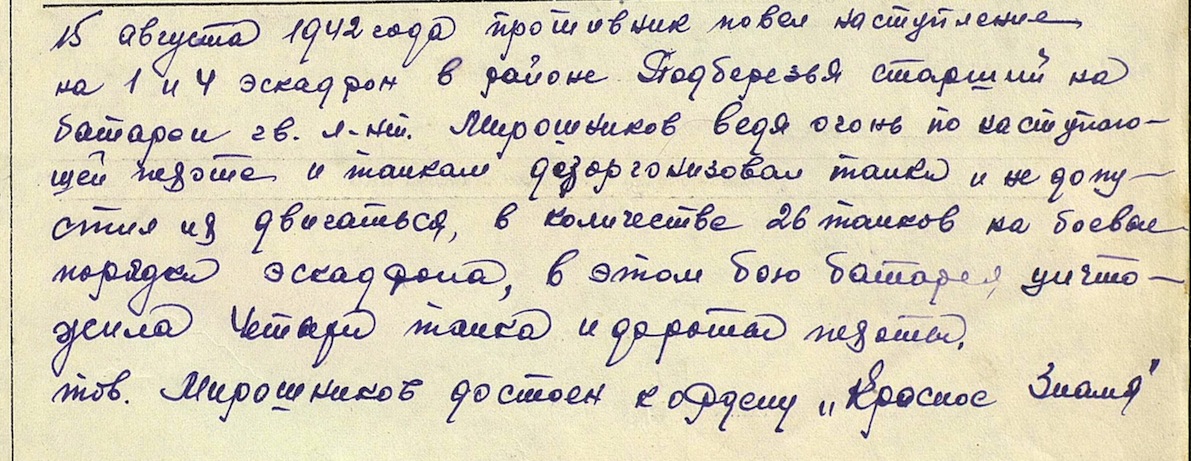 15 августа 1942 года противник повел наступление
на 1 и 4 эскадрон в районе Подберезья старший на
батареи гв. л-нт. Мирошников ведя огонь по наступаю-
щей пехоте и танкам дезорганизовал танки и не допу-
стил их двигаться, в количестве 26 танков на боевые
порядки эскадрона, в этом бою батарея уничто-
жила Четыри танка и до роты пехоты.
тов. Мирошников достоен к ордену „Красное Знамя"